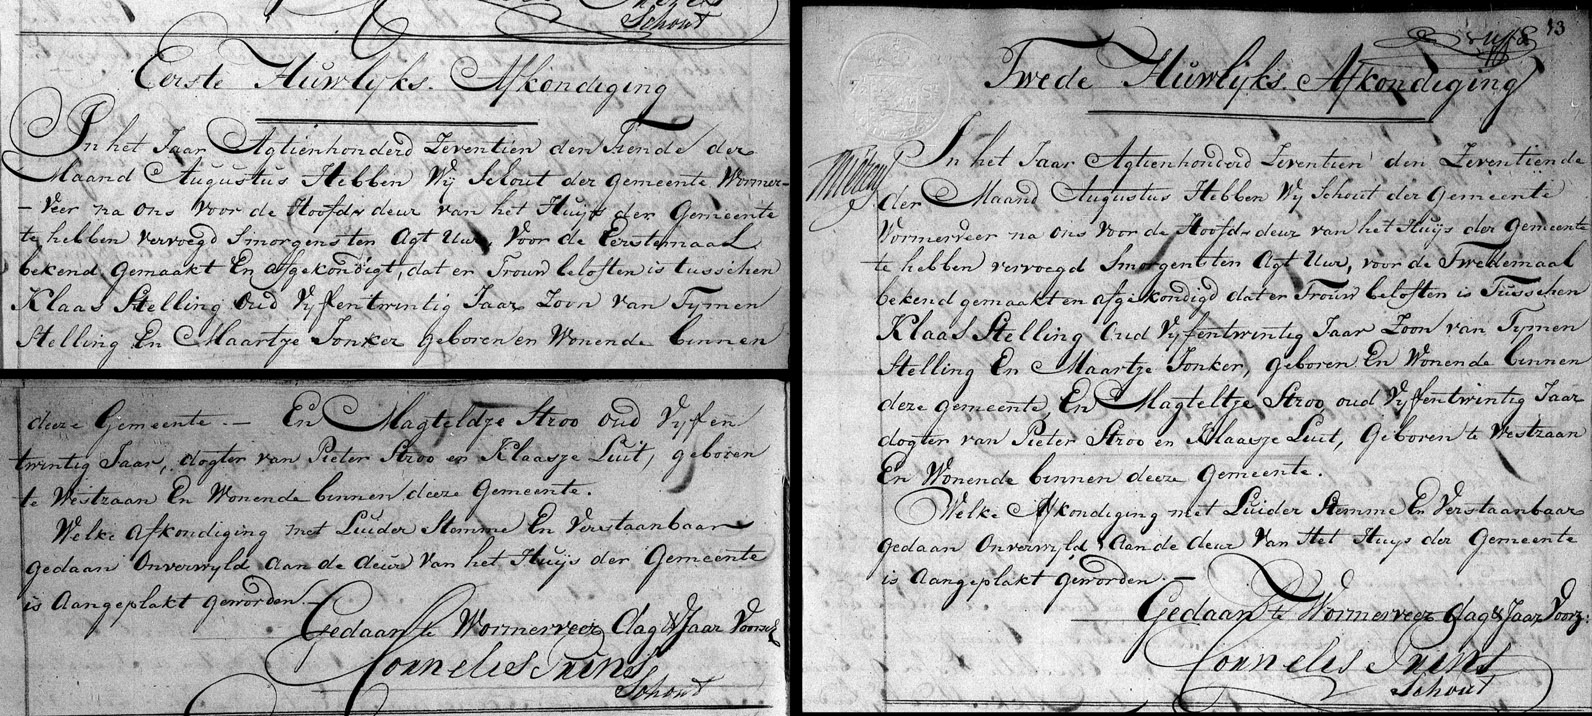 Schout
Eerste Huwlijks. Afkondiging
In het Jaar Agtienhonderd Zeventien den Tiende der
Maand Augustus Hebben Wij Schout der gemeente Wormer-
-veer na ons voor de Hoofd-deur van het Huijs der Gemeente
te hebben vervoegd Smorgens ten Agt Uur, voor de Eerstemaal
bekend, gemaakt En afgekondigt, dat er Trouw beloften is tusschen
Klaas Stelling Oud Vyffentwintig Jaar Zoon van Tymen
Stelling En Maartje Jonker geboren en Wonende binnen
deeze Gemeente. — En Magteldje Stroo oud Vyffen
twintig Jaar, dogter van Pieter Stroo en Klaasje Luit, geboren
te Westzaan En Wonende binnen deeze Gemeente.
Welke Afkondiging met Luider Stemme En Verstaanbaar
gedaan Onverwyld aan de deur van het Huijs der Gemeente
is Aangeplakt geworden. —
Gedaan te Wormerveer dag & Jaar Voorsz
Cornelis Prins
Schout
13
Twede Huwlijks. Afkondiging
In het Jaar Agtienhonderd Zeventien den Zeventiende
der Maand Augustus Hebben Wij Schout der Gemeente
Wormerveer na ons voor de Hoofd-deur van het Huijs der Gemeente
te hebben vervoegd Smorgens ten Agt Uur, voor de Twedemaal
bekend gemaakt en afgekondigd dat er Trouw beloften is Tusschen
Klaas Stelling Oud Vyffentwintig Jaar Zoon van Tymen
Stelling En Maartje Jonker, geboren En Wonende binnen
deze gemeente, En Magteltje Stroo oud Vyffentwintig Jaar
dogter van Pieter Stroo en Klaasje Luit, Geboren te Westzaan
En Wonende binnen deeze Gemeente.
Welke Afkondiging met Luider Stemme En Verstaanbaar
gedaan Onverwyld Aan de deur Van Het Huijs der Gemeente
is Aangeplakt geworden. —
Gedaan te Wormerveer dag & Jaar Voorz:
Cornelis Prins
Schout